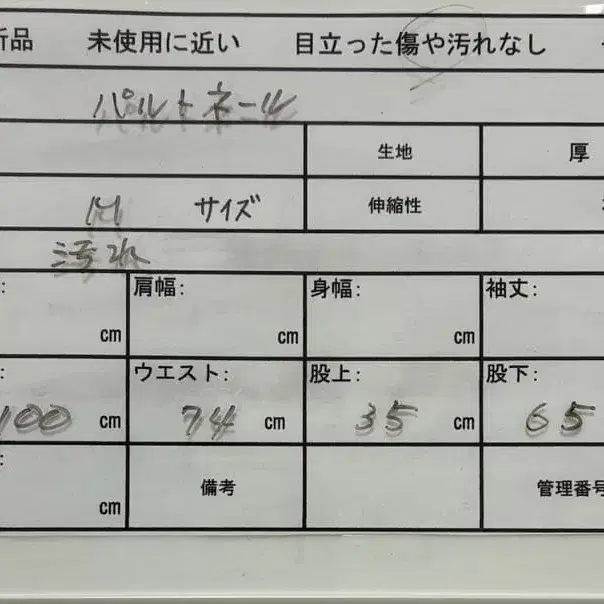 新品 未使用に近い 目立った傷や汚れなし
パルトネール
生地 厚
M サイズ 伸縮性
汚れ
: cm 肩幅: cm 身幅: cm 袖丈:
: 100 cm ウエスト: 74 cm 股上: 35 cm 股下: 65
: cm 備考 管理番号